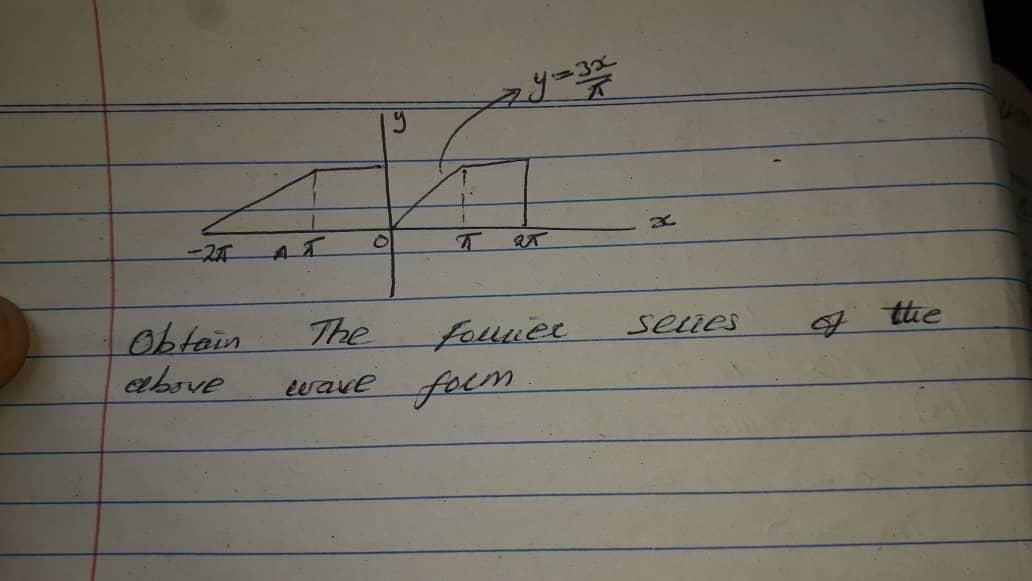 y = 3x/π
y
x
-2π π 0 π 2π
Obtain The Fourier series of the
above wave form